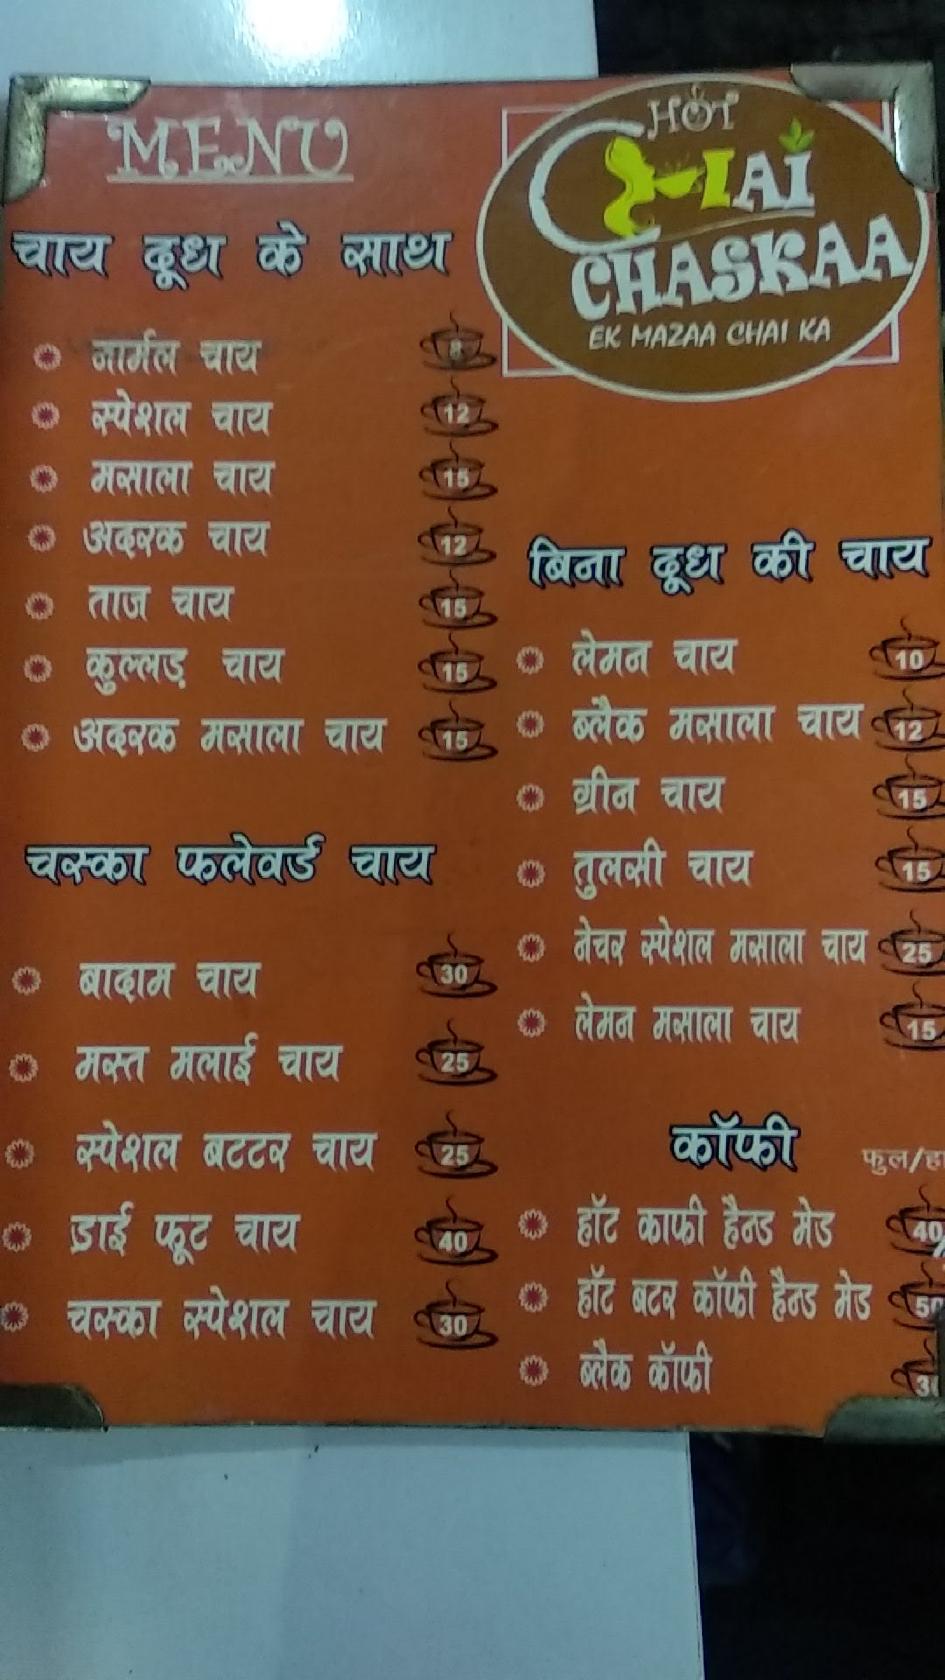 MENU
HOT
CHAI
CHASKAA
EK MAZAA CHAI KA
चाय दूध के साथ
नार्मल चाय 8
स्पेशल चाय 12
मसाला चाय 15
अदरक चाय 12
ताज चाय 15
कुल्लड़ चाय 15
अदरक मसाला चाय 15
चस्का फलेवर्ड चाय
बादाम चाय 30
मस्त मलाई चाय 25
स्पेशल बटटर चाय 25
ड्राई फ्रूट चाय 40
चस्का स्पेशल चाय 30
बिना दूध की चाय
लेमन चाय 10
ब्लैक मसाला चाय 12
ग्रीन चाय 15
तुलसी चाय 15
नेचर स्पेशल मसाला चाय 25
लेमन मसाला चाय 15
कॉफी
फुल/
हॉट काफी हैन्ड मेड 40
हॉट बटर कॉफी हैन्ड मेड 50
ब्लैक कॉफी